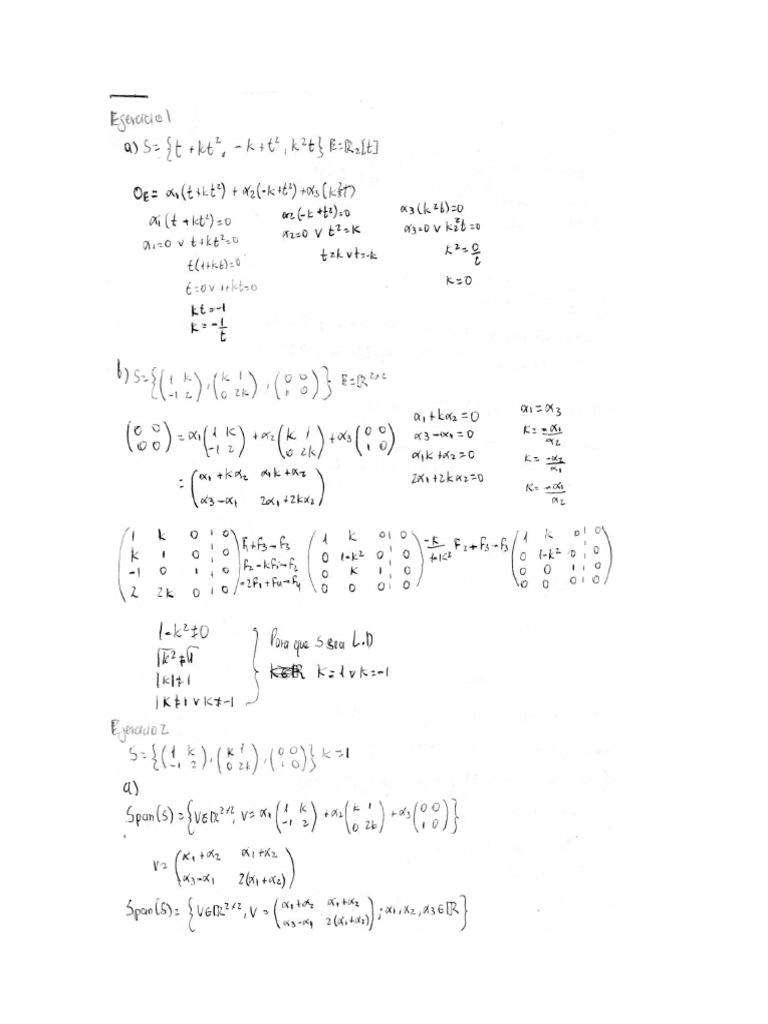 Ejercicio 1
a) S={t+kt², -k+t², k²t} E=ℝ₂[t]
0_E = α₁(t+kt²) + α₂(-k+t²) + α₃(k²t)
α₁(t+kt²)=0 α₂(-k+t²)=0 α₃(k²t)=0
α₁=0 ∨ t+kt²=0 α₂=0 ∨ t²=k α₃=0 ∨ k²t=0
t(1+kt)=0 t=k ∨ t=-k k²=0/t
t=0 ∨ 1+kt=0 k=0
kt=-1
k=-1/t
b) S={(1 k; -1 2), (k 1; 0 2k), (0 0; 1 0)} E=ℝ²ˣ²
(0 0; 0 0) = α₁(1 k; -1 2) + α₂(k 1; 0 2k) + α₃(0 0; 1 0)
= (α₁+kα₂ α₁k+α₂; α₃-α₁ 2α₁+2kα₂)
α₁+kα₂=0 α₁=α₃
α₃-α₁=0 k=-α₁/α₂
α₁k+α₂=0 k=-α₂/α₁
2α₁+2kα₂=0 k=-α₃/α₂
(1 k 0 | 0; k 1 0 | 0; -1 0 1 | 0; 2 2k 0 | 0) F₁+F₃→F₃ F₂-kF₁→F₂ -2F₁+F₄→F₄ (1 k 0 | 0; 0 1-k² 0 | 0; 0 k 1 | 0; 0 0 0 | 0) -k/1-k² F₂+F₃→F₃ (1 k 0 | 0; 0 1-k² 0 | 0; 0 0 1 | 0; 0 0 0 | 0)
1-k²≠0
√k²≠√1
|k|≠1
k≠1 ∨ k≠-1
Para que S sea L.D
k=1 ∨ k=-1
Ejercicio 2
S={(1 k; -1 2), (k 1; 0 2k), (0 0; 1 0)} k=1
a)
Span(S)={V∈ℝ²ˣ², V=α₁(1 k; -1 2) + α₂(k 1; 0 2k) + α₃(0 0; 1 0)}
V=(α₁+α₂ α₁+α₂; α₃-α₁ 2(α₁+α₂))
Span(S)={V∈ℝ²ˣ², V=(α₁+α₂ α₁+α₂; α₃-α₁ 2(α₁+α₂)); α₁,α₂,α₃∈ℝ}